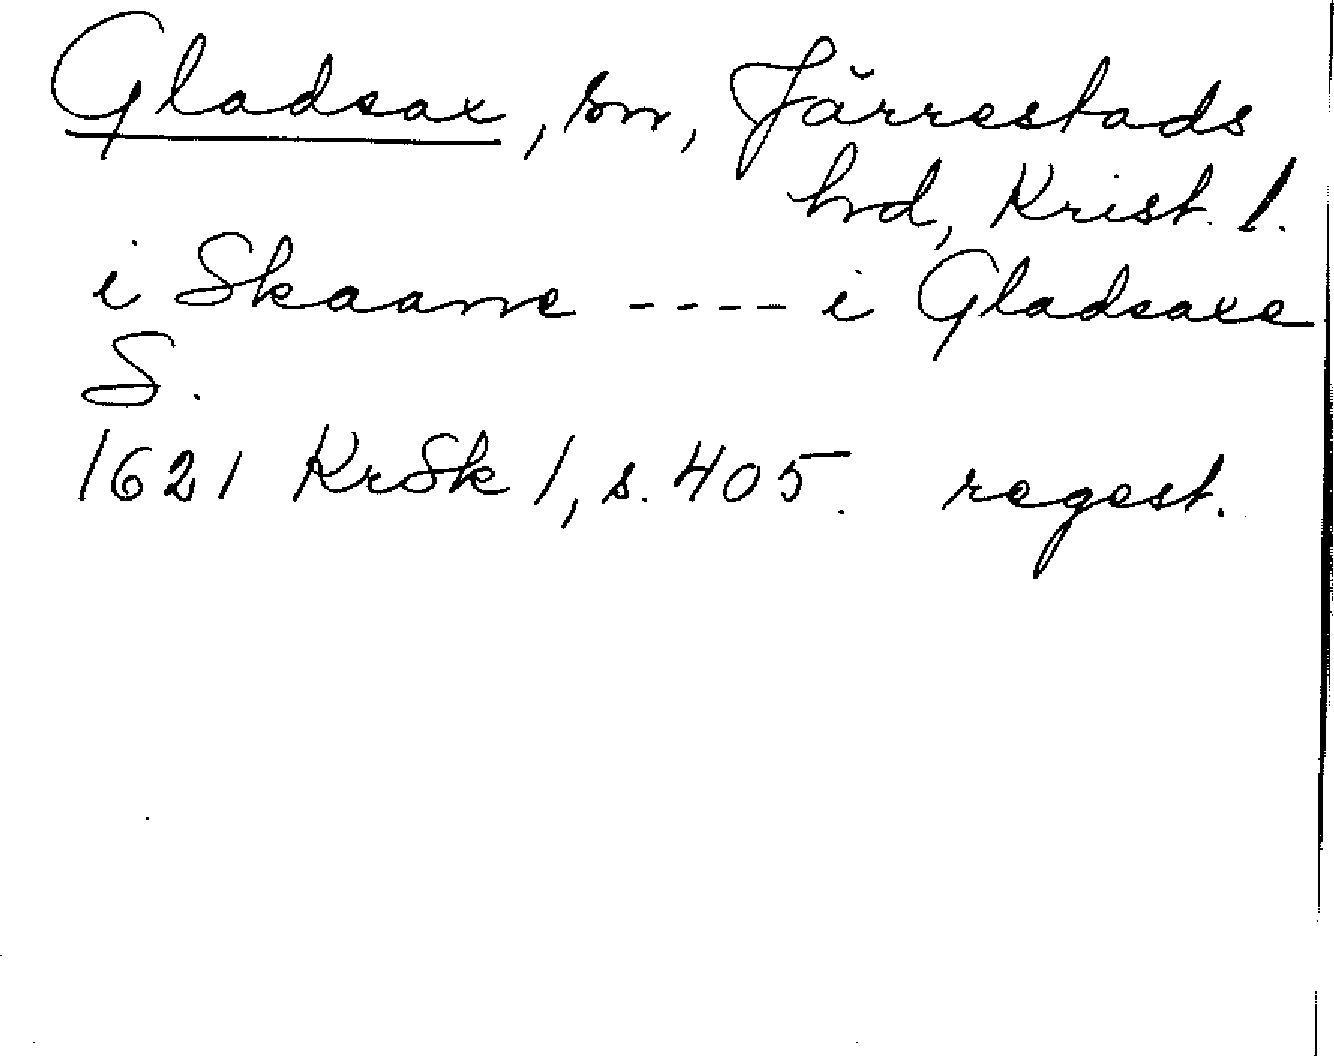 Gladsax, sn, Järrestads
hd, Krist. l.
i Skaane ---- i Gladsaxe
S.
1621 KrSk 1, s. 405. regest.